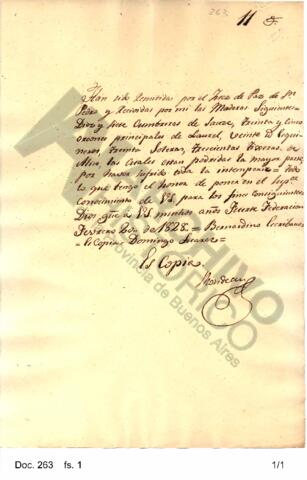 263
11
Han sido remitidas por el Juez de Paz de Sn
Pedro y recividas por mi las Maderas siguientes
Diez y siete Cumbreras de Sauce, treinta y cinco
orcones principales de Laurel, veinte id esqui
neros, treinta soleras, trescientas tixeras de
las cuales estan podridas la mayor parte
por haver sufrido toda la intemperie = todo
lo que tengo el honor de poner en el
Conocimiento de VS para los fines consiguientes
Dios gue a VS muchos años Fuerte Federacion
Fevrero de 1828 = Bernardino Escribano
Es Copia = Domingo Suarez =
Es Copia
Rondeau
ARCHIVO
HISTORICO
Provincia de Buenos Aires
Doc. 263 fs. 1
1/1